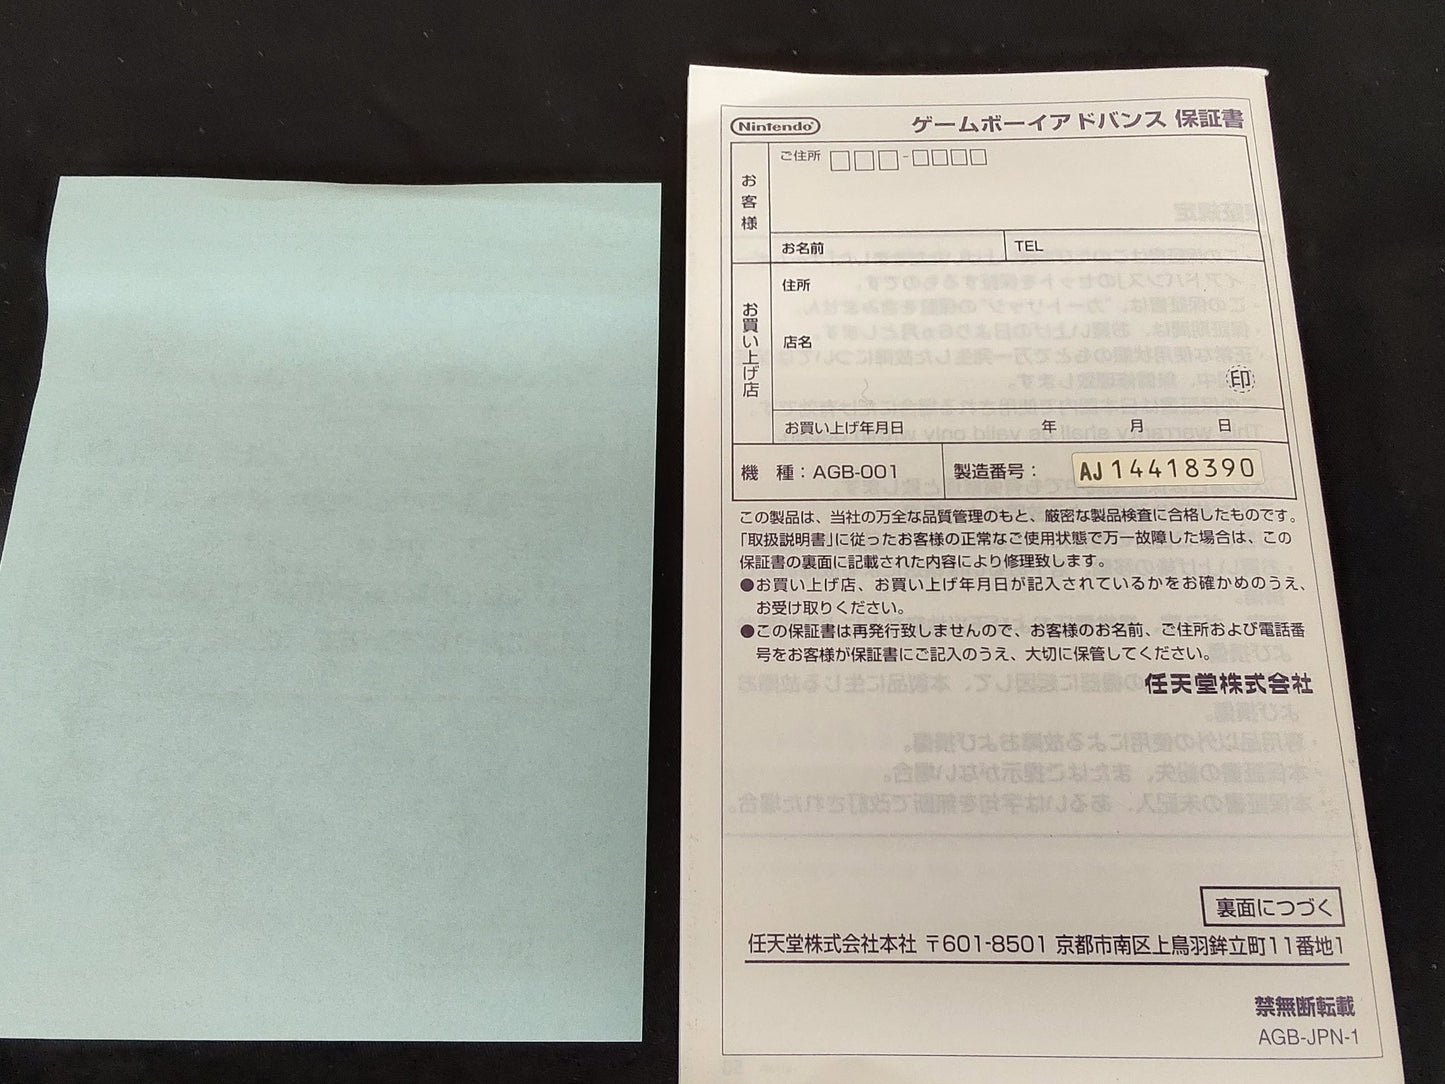 Nintendo
ゲームボーイアドバンス 保証書
お客様
ご住所 □□□-□□□□
お名前
TEL
お買い上げ店
住所
店名
印
お買い上げ年月日 年 月 日
機 種：AGB-001
製造番号： AJ14418390
この製品は、当社の万全な品質管理のもと、厳密な製品検査に合格したものです。
「取扱説明書」に従ったお客様の正常なご使用状態で万一故障した場合は、この
保証書の裏面に記載された内容により修理致します。
●お買い上げ店、お買い上げ年月日が記入されているかをお確かめのうえ、
お受け取りください。
●この保証書は再発行致しませんので、お客様のお名前、ご住所および電話番
号をお客様が保証書にご記入のうえ、大切に保管してください。
任天堂株式会社
裏面につづく
任天堂株式会社本社 〒601-8501 京都市南区上鳥羽鉾立町11番地1
禁無断転載
AGB-JPN-1